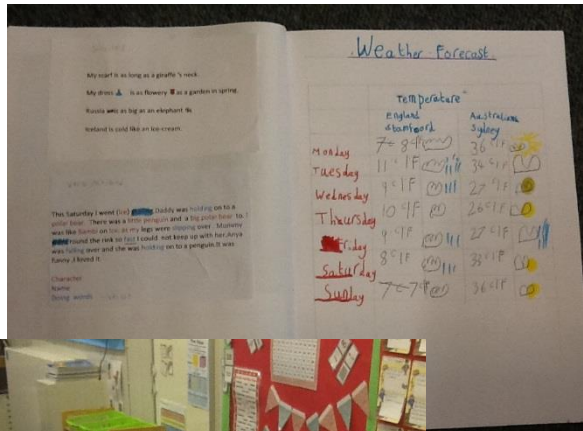 My scarf is as long as a giraffe 's neck.
My dress is as flowery as a garden in spring.
Russia is as big as an elephant
Iceland is cold like an ice-cream.
This Saturday I went (ice) Daddy was holding on to a
polar bear. There was a little penguin and a big polar bear to. I
was like Bambi on ice, as my legs were slipping over. Mummy
round the rink so fast I could not keep up with her. Anya
was falling over and she was holding on to a penguin. It was
funny .I loved it.
Character
Name
Doing words
Weather Forecast
Temperature
England
Stamford
Australian
Sydney
Monday 7 - 8 c1F 36 c1F
Tuesday 11 c1F 34 c1F
Wednesday 9 c1F 27 c1F
Thursday 10 c1F 26 c1F
Friday 9 c1F 27 c1F
Saturday 8 c1F 33 c1F
Sunday 7 - 7 c1F 36 c1F